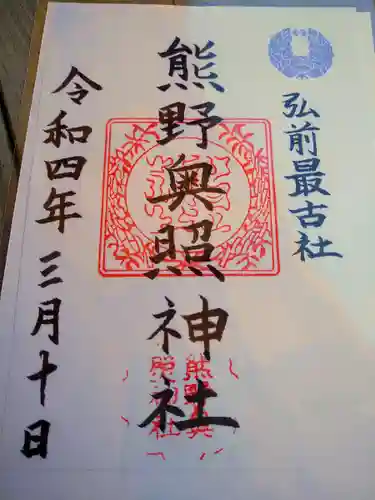 弘前最古社
熊野奥照神社
令和四年 三月十日
熊野奥
照神社